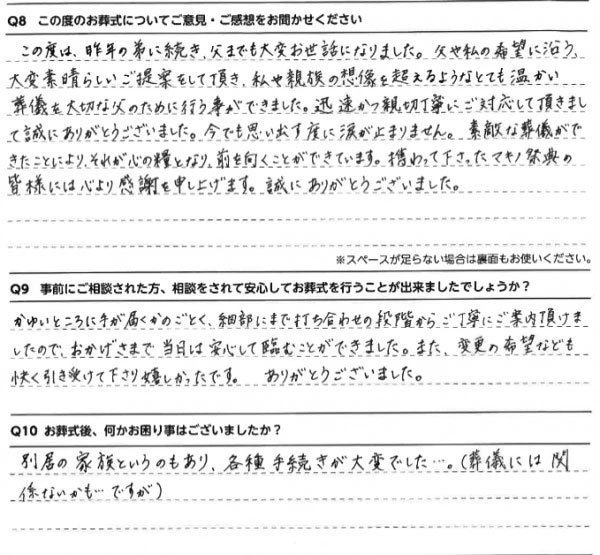 Q8 この度のお葬式についてご意見・ご感想をお聞かせください
この度は、昨年の弟に続き、父までも大変お世話になりました。父や私の希望に沿う、
大変素晴らしいご提案をして頂き、私や親族の想像を超えるようなとても温かい
葬儀を大切な父のために行う事ができました。迅速かつ親切丁寧にご対応して頂きまし
て誠にありがとうございました。今でも思い出す度に涙が止まりません。素敵な葬儀がで
きたことにより、それが心の糧となり、前を向くことができています。携わって下さったマキノ祭典の
皆様には心より感謝を申し上げます。誠にありがとうございました。
※スペースが足らない場合は裏面もお使いください。
Q9 事前にご相談された方、相談をされて安心してお葬式を行うことが出来ましたでしょうか？
かゆいところに手が届くかのごとく、細部にまで打ち合わせの段階からご丁寧にご案内頂けま
したので、おかげさまで当日は安心して臨むことができました。また、変更の希望なども
快く引き受けて下さり嬉しかったです。 ありがとうございました。
Q10 お葬式後、何かお困り事はございましたか？
別居の家族というのもあり、各種手続きが大変でした…。(葬儀には関
係ないかも…ですが)